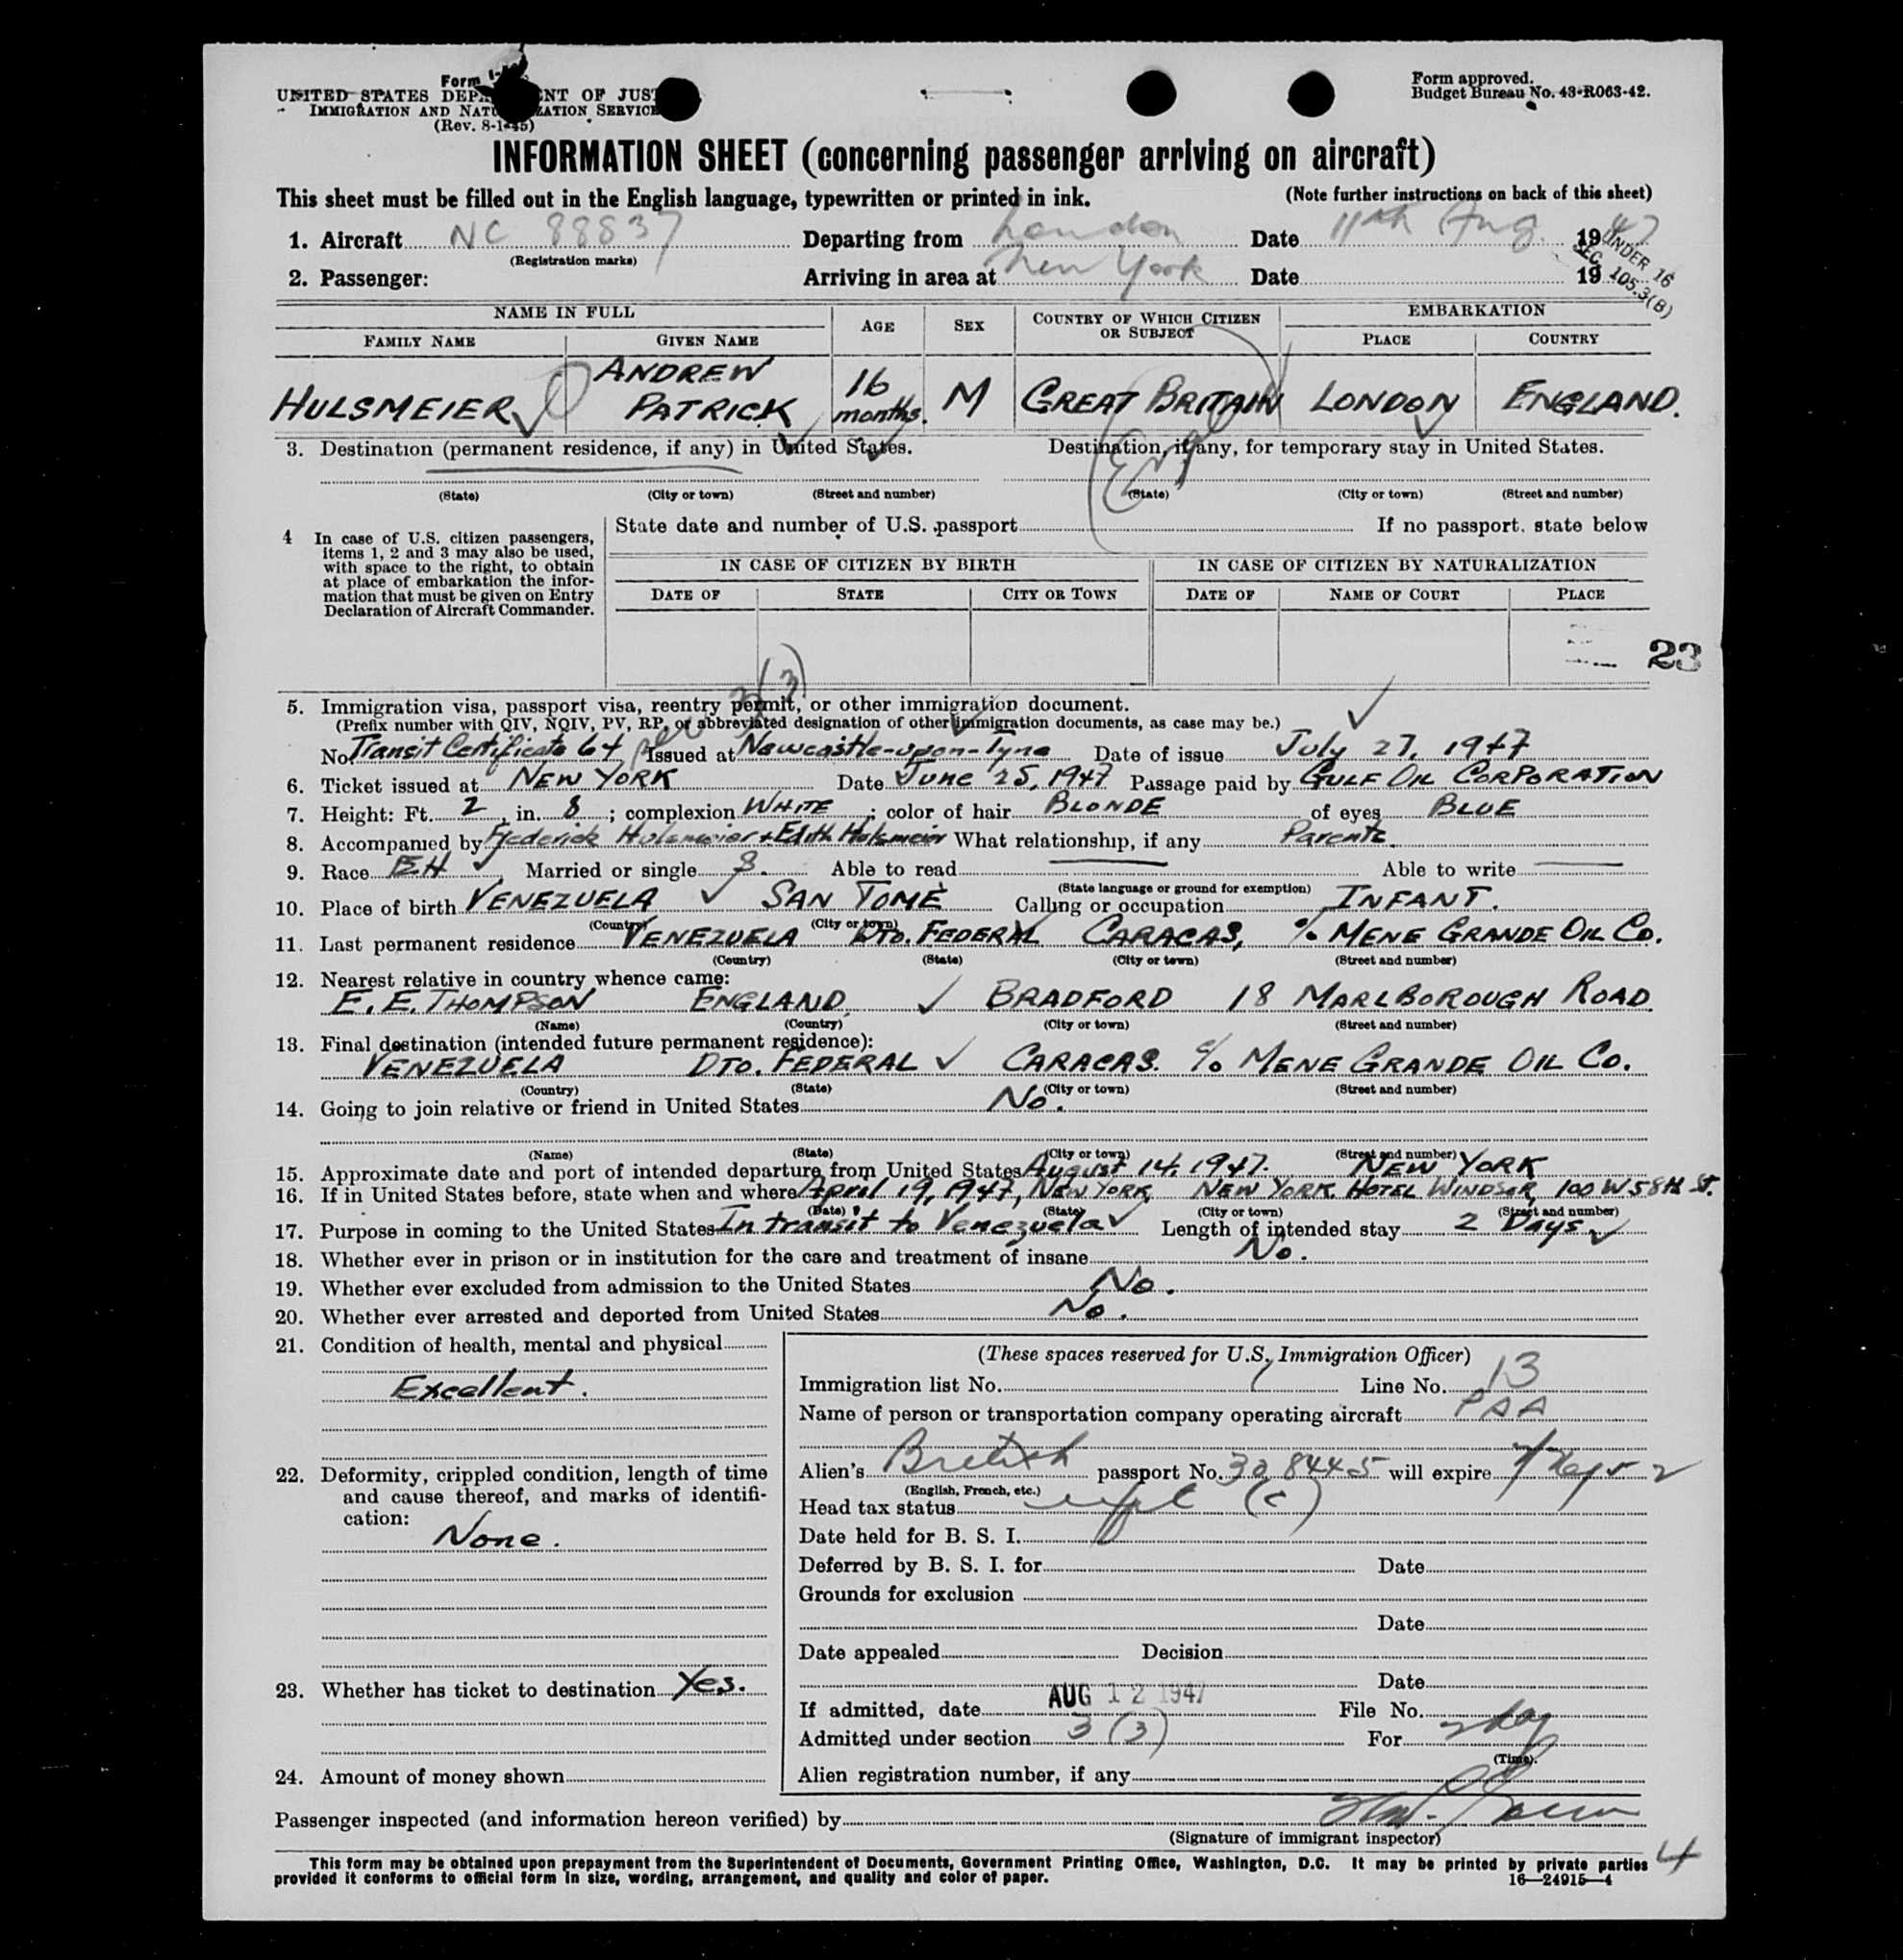 Form
UNITED STATES DEPARTMENT OF JUSTICE
IMMIGRATION AND NATURALIZATION SERVICE
(Rev. 8-1-45)
Form approved.
Budget Bureau No. 43-R063-42.
INFORMATION SHEET (concerning passenger arriving on aircraft)
This sheet must be filled out in the English language, typewritten or printed in ink. (Note further instructions on back of this sheet)
1. Aircraft NC 88837 Departing from London Date 11th Aug. 1947
(Registration marks)
UNDER 16
SEC 105.3(B)
2. Passenger: Arriving in area at New York Date 19
NAME IN FULL AGE SEX COUNTRY OF WHICH CITIZEN OR SUBJECT EMBARKATION
FAMILY NAME GIVEN NAME PLACE COUNTRY
HULSMEIER ANDREW PATRICK 16 months. M GREAT BRITAIN LONDON ENGLAND.
(Eng)
3. Destination (permanent residence, if any) in United States. Destination, if any, for temporary stay in United States.
(State) (City or town) (Street and number) (State) (City or town) (Street and number)
4 In case of U.S. citizen passengers, items 1, 2 and 3 may also be used, with space to the right, to obtain at place of embarkation the information that must be given on Entry Declaration of Aircraft Commander.
State date and number of U.S. passport If no passport, state below
IN CASE OF CITIZEN BY BIRTH IN CASE OF CITIZEN BY NATURALIZATION
DATE OF STATE CITY OR TOWN DATE OF NAME OF COURT PLACE
23
3(3)
5. Immigration visa, passport visa, reentry permit, or other immigration document.
(Prefix number with QIV, NQIV, PV, RP, or abbreviated designation of other immigration documents, as case may be.)
No. Transit Certificate 64 Issued at Newcastle-upon-Tyne Date of issue July 27, 1947
6. Ticket issued at NEW YORK Date June 25, 1947 Passage paid by GULF OIL CORPORATION
7. Height: Ft. 2, in. 8; complexion WHITE; color of hair BLONDE of eyes BLUE
8. Accompanied by Frederick Hulsmeier + Edith Hulsmeier What relationship, if any Parents.
9. Race EH, Married or single S. Able to read Able to write
(State language or ground for exemption)
10. Place of birth VENEZUELA SAN TOMÉ Calling or occupation INFANT.
(Country) (City or town)
11. Last permanent residence VENEZUELA DTO. FEDERAL CARACAS, % MENE GRANDE OIL CO.
(Country) (State) (City or town) (Street and number)
12. Nearest relative in country whence came:
E. E. THOMPSON ENGLAND, BRADFORD 18 MARLBOROUGH ROAD
(Name) (Country) (City or town) (Street and number)
13. Final destination (intended future permanent residence):
VENEZUELA DTO. FEDERAL CARACAS. c/o MENE GRANDE OIL CO.
(Country) (State) (City or town) (Street and number)
14. Going to join relative or friend in United States No.
(Name) (State) (City or town) (Street and number)
15. Approximate date and port of intended departure from United States August 14, 1947. NEW YORK
16. If in United States before, state when and where April 19, 1947, NEW YORK, NEW YORK HOTEL WINDSOR, 100 W 58th St.
(Date) (State) (City or town) (Street and number)
17. Purpose in coming to the United States In transit to Venezuela Length of intended stay 2 Days
18. Whether ever in prison or in institution for the care and treatment of insane No.
19. Whether ever excluded from admission to the United States No.
20. Whether ever arrested and deported from United States No.
21. Condition of health, mental and physical
Excellent.
22. Deformity, crippled condition, length of time and cause thereof, and marks of identification:
None.
23. Whether has ticket to destination Yes.
24. Amount of money shown
(These spaces reserved for U.S. Immigration Officer)
Immigration list No. 1 Line No. 13
Name of person or transportation company operating aircraft PAA
Alien's British passport No. 308445 will expire
(English, French, etc.)
Head tax status (c)
Date held for B. S. I.
Deferred by B. S. I. for Date
Grounds for exclusion
Date
Date appealed Decision
Date
If admitted, date AUG 12 1947 File No.
Admitted under section 3 (3) For 2 day
(Time)
Alien registration number, if any
Passenger inspected (and information hereon verified) by
(Signature of immigrant inspector)
4
This form may be obtained upon prepayment from the Superintendent of Documents, Government Printing Office, Washington, D.C. It may be printed by private parties
provided it conforms to official form in size, wording, arrangement, and quality and color of paper. 16—24915—4